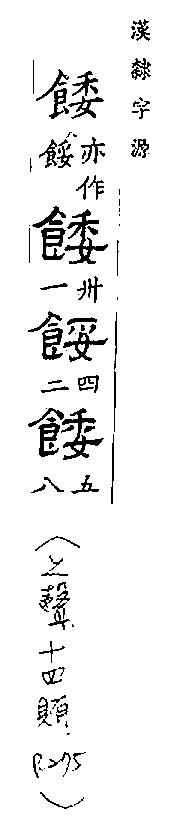 漢隸字源
餧
亦作
餒
餧
卅
一
餒
四
二
餧
五
八
（上聲十四賄 P.275）